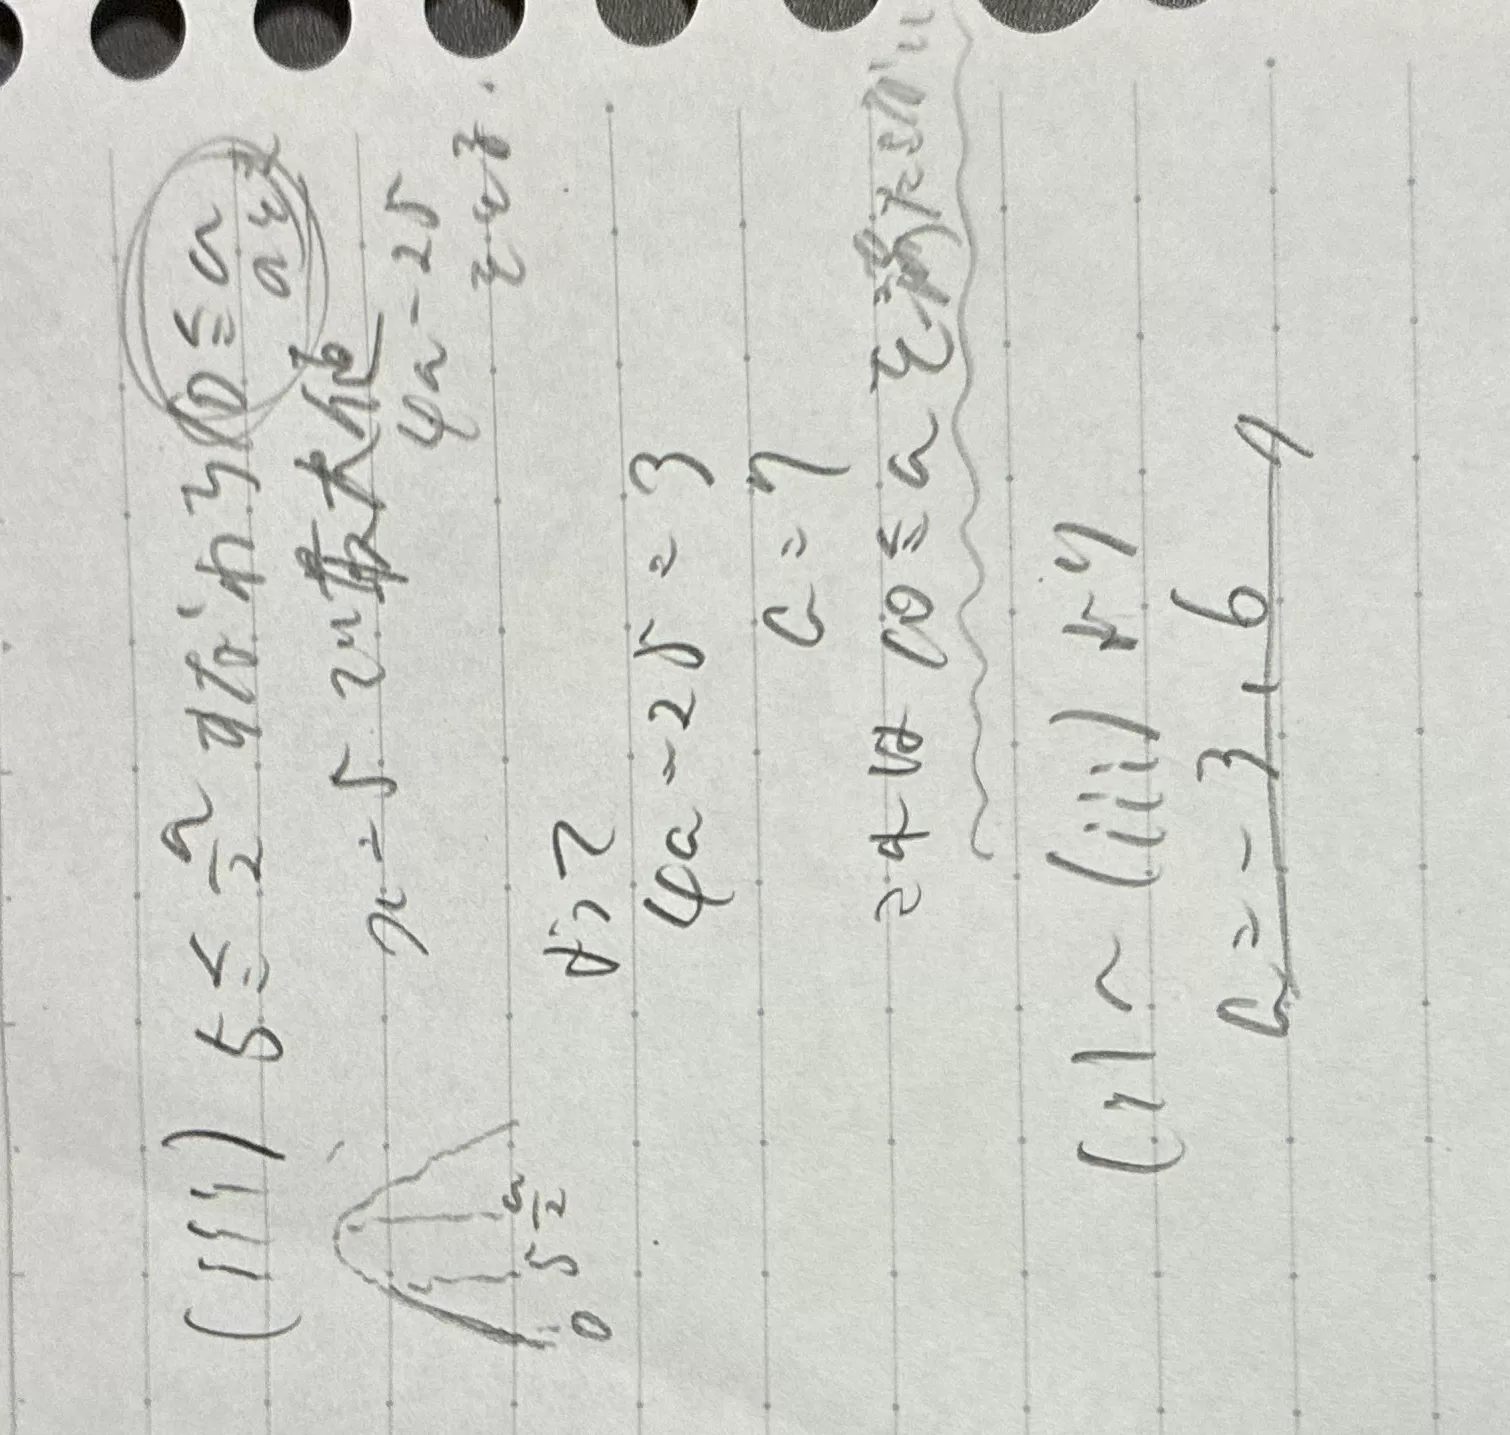 (iii) 5≦a/2 すなわち10≦aのとき
x=5で最大値
4a-25
をとる.
0 5 a/2
よって
4a-25=3
a=7
これは10≦aを満たさない
(i)~(iii)より
a=-3,6